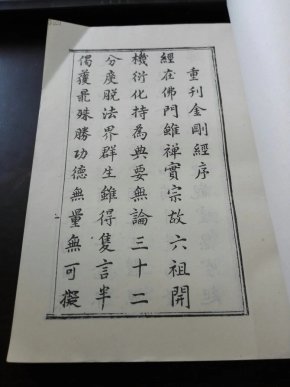 重刊金剛經序
經在佛門雖禪實宗故六祖開
機衍化持為典要無論三十二
分度脫法界群生雖得隻言半
偈獲最殊勝功德無量無可擬